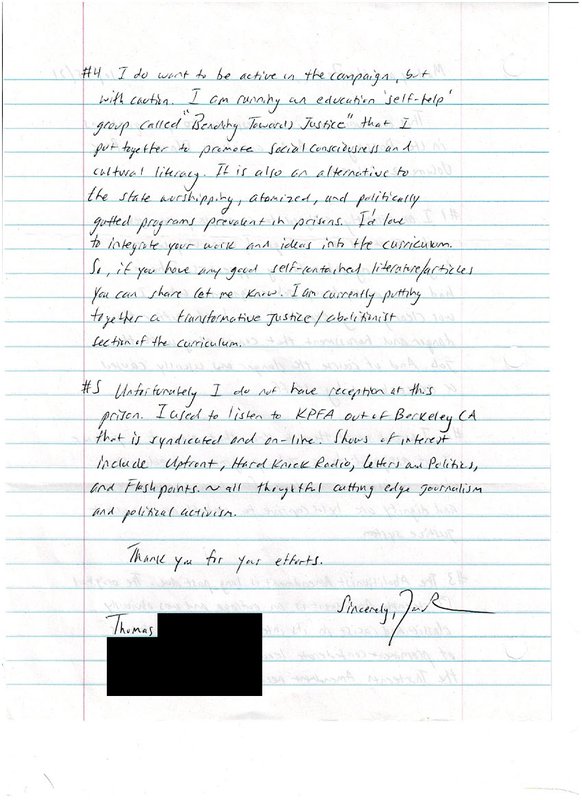 #4 I do want to be active in the campaign, but
with caution. I am running an education 'self-help'
group called "Bending Towards Justice" that I
put together to promote social consciousness and
cultural literacy. It is also an alternative to
the state worshipping, atomized, and politically
gutted programs prevalent in prisons. I'd love
to integrate your work and ideas into the curriculum.
So, if you have any good self-contained literature/articles
you can share let me know. I am currently putting
together a transformative Justice/abolitionist
section of the curriculum.
#5 Unfortunately I do not have reception at this
prison. I used to listen to KPFA out of Berkeley CA
that is syndicated and on-line. Shows of interest
include Upfront, Hard Knock Radio, Letters and Politics,
and Flashpoints ~ all thoughtful cutting edge journalism
and political activism.
Thank you for your efforts.
Sincerely,
Thomas